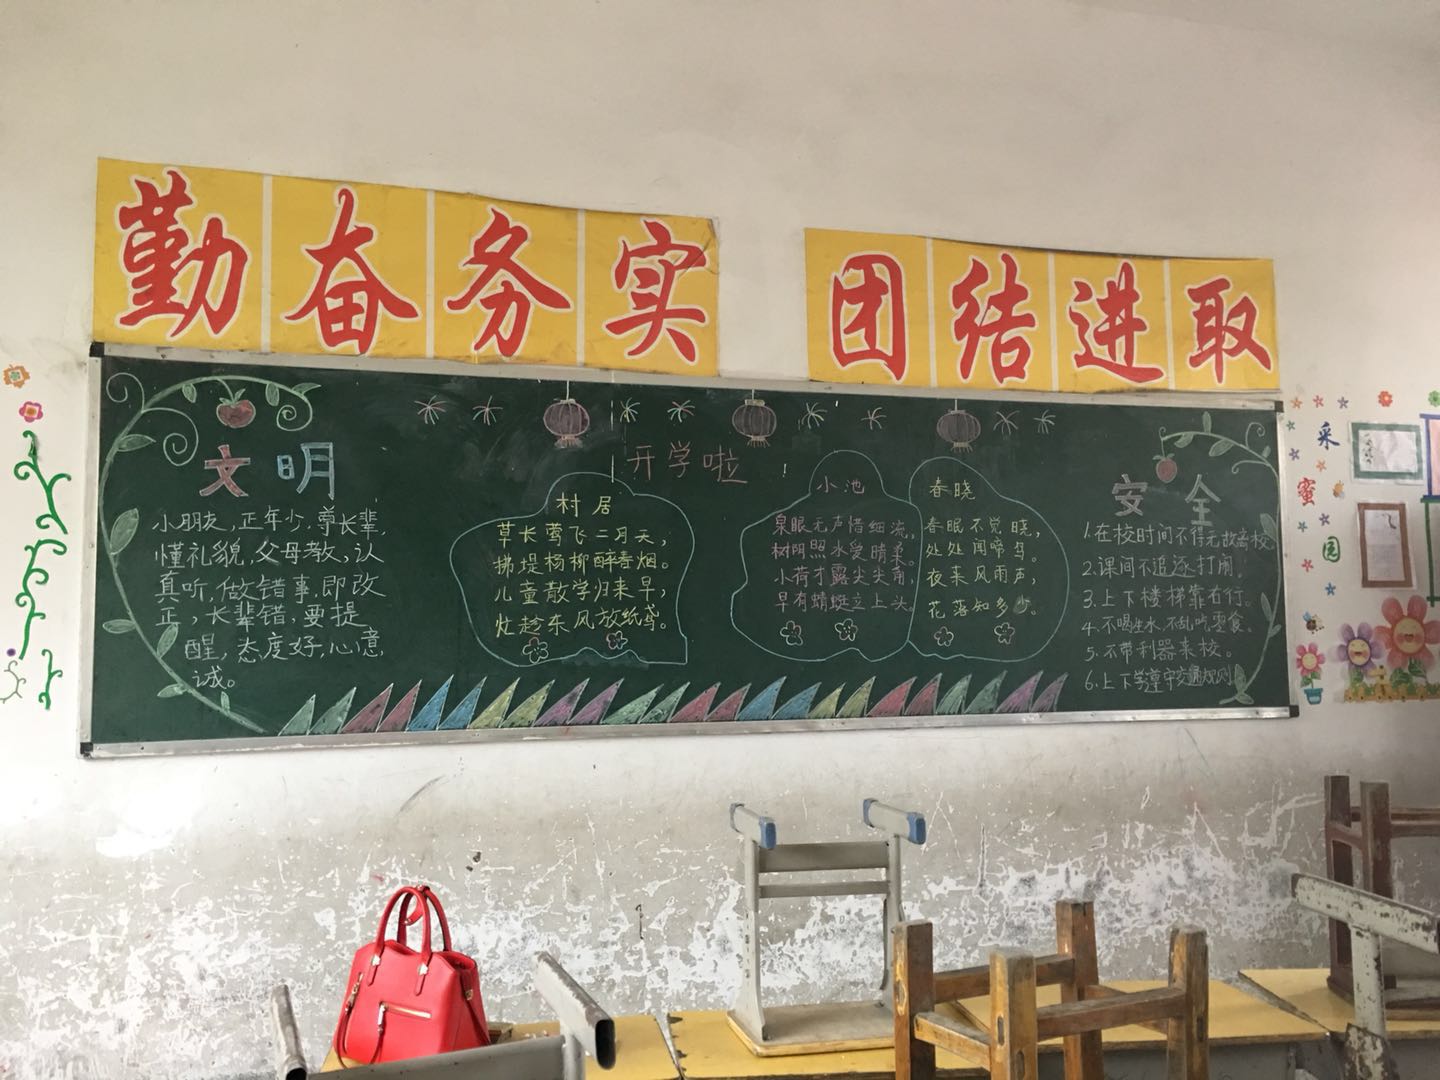 勤奋务实 团结进取
开学啦
文明
小朋友,正年少,尊长辈,
懂礼貌,父母教,认
真听,做错事,即改
正,长辈错,要提
醒,态度好,心意
诚。
村居
草长莺飞二月天,
拂堤杨柳醉春烟。
儿童散学归来早,
灶趁东风放纸鸢。
小池
泉眼无声惜细流,
树阴照水爱晴柔。
小荷才露尖尖角,
早有蜻蜓立上头。
春晓
春眠不觉晓,
处处闻啼鸟。
夜来风雨声,
花落知多少。
安全
1.在校时间不得无故离校
2.课间不追逐打闹。
3.上下楼梯靠右行。
4.不喝生水,不乱吃零食。
5.不带利器来校。
6.上下学遵守交通规则
采蜜园